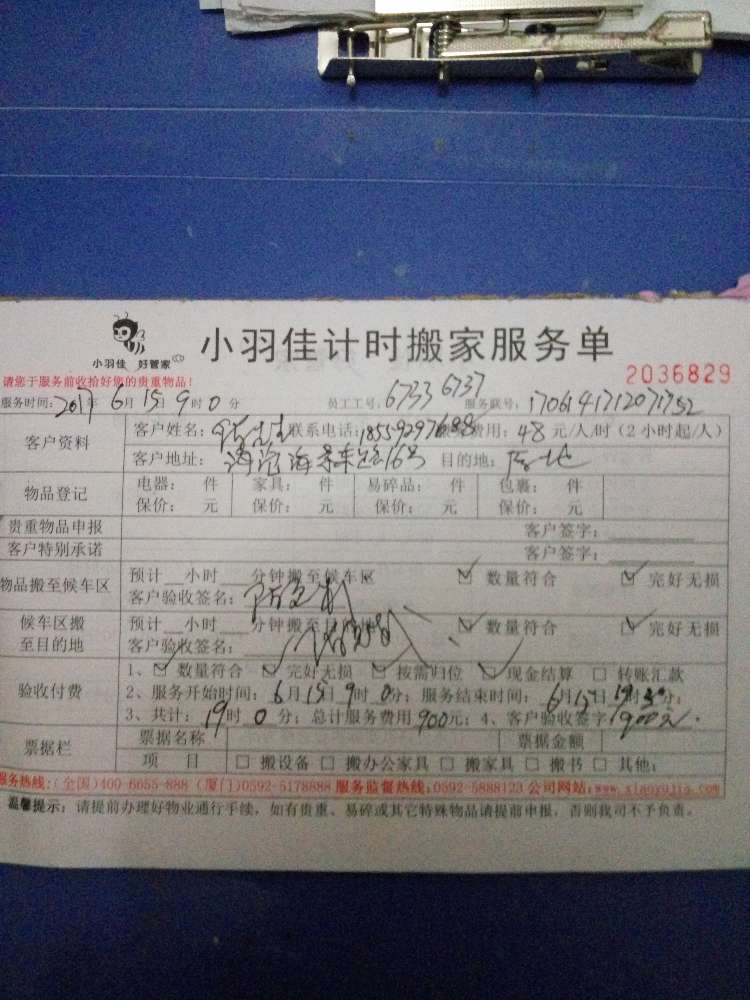 小羽佳 好管家
小羽佳计时搬家服务单
请您于服务前收拾好您的贵重物品!
2036829
服务时间: 2017年 6月 15日 9时 0分 员工工号: 6733 6737 服务联号:
客户资料 客户姓名: 联系电话: 费用: 48 元/人/时 (2小时起/人)
客户地址: 海沧海景东路16号 目的地:
物品登记 电器: 件 家具: 件 易碎品: 件 包裹: 件
保价: 元 保价: 元 保价: 元 保价: 元
贵重物品申报 客户签字:
客户特别承诺 客户签字:
物品搬至候车区 预计__小时__分钟搬至候车区 ☑ 数量符合 ☑ 完好无损
客户验收签名:
候车区搬至目的地 预计__小时__分钟搬至目的地 ☑ 数量符合 ☑ 完好无损
客户验收签名:
验收付费 1、☑ 数量符合 ☑ 完好无损 ☑ 按需归位 ☑ 现金结算 □ 转账汇款
2、服务开始时间: 6月 15日 9时 0分; 服务结束时间: 6月 15日
3、共计: 19时 0分; 总计服务费用 900元; 4、客户验收签字 900元.
票据栏 票据名称 票据金额
项 目 □ 搬设备 □ 搬办公家具 □ 搬家具 □ 搬书 □ 其他:
服务热线:(全国)400-6655-888 (厦门)0592-5178888 服务监督热线:0592-5888123 公司网站:www.xiaoyujia.com
温馨提示: 请提前办理好物业通行手续, 如有贵重、易碎或其它特殊物品请提前申报, 否则我司不予负责。